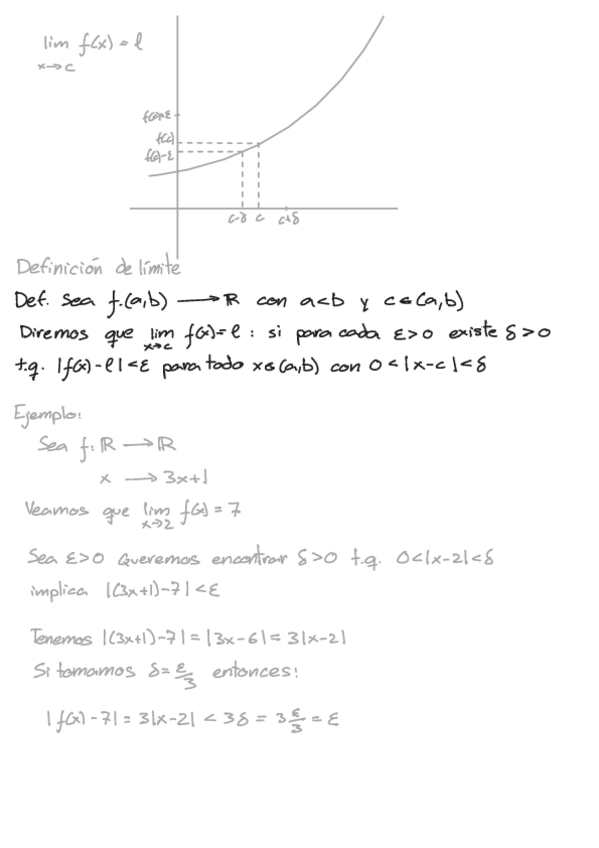 lim f(x) = l
x→c
f(c)+ε
f(c)
f(c)-ε
c-δ c c+δ
Definición de límite
Def. Sea f:(a,b) → ℝ con a<b y c∈(a,b)
Diremos que lim f(x)=l : si para cada ε>0 existe δ>0
x→c
t.q. |f(x)-l|<ε para todo x∈(a,b) con 0<|x-c|<δ
Ejemplo:
Sea f:ℝ → ℝ
x → 3x+1
Veamos que lim f(x) = 7
x→2
Sea ε>0 Queremos encontrar δ>0 t.q. 0<|x-2|<δ
implica |(3x+1)-7|<ε
Tenemos |(3x+1)-7|=|3x-6|=3|x-2|
Si tomamos δ=ε/3 entonces:
|f(x)-7|=3|x-2| < 3δ = 3ε/3 = ε